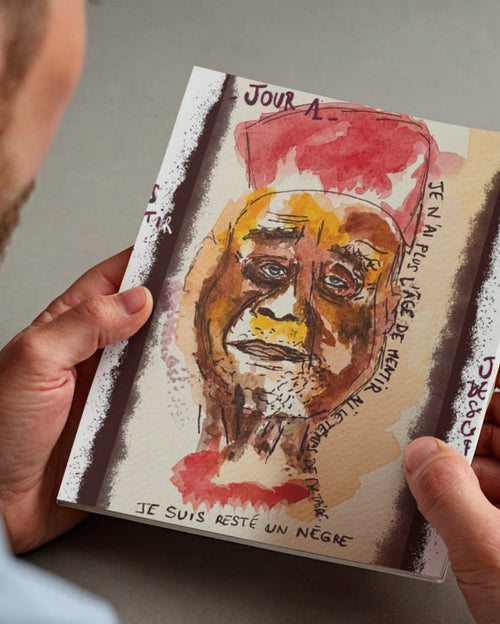 - JOUR 1 -
JE N'AI PLUS L'ÂGE DE MENTIR NI LE TEMPS DE
JE SUIS RESTÉ UN NÈGRE